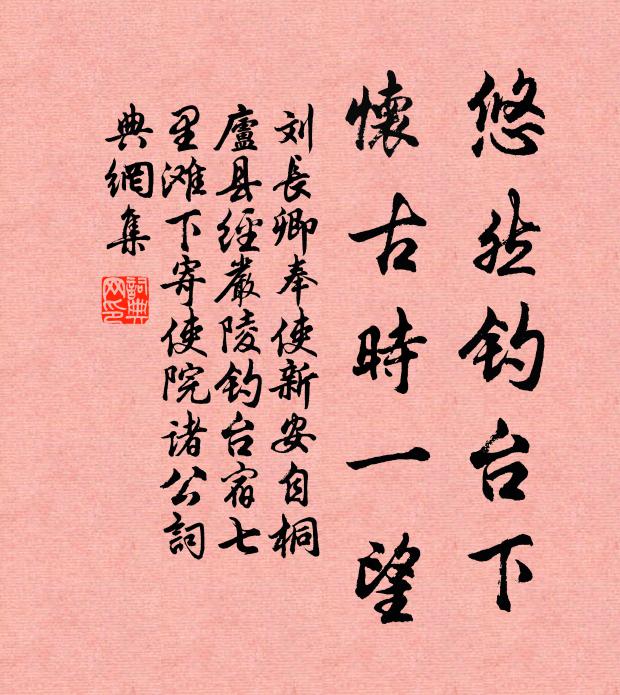 悠然钓台下
懷古時一望
刘長卿奉使新安自桐
廬县經嚴陵钓台宿七
里滩下寄使院诸公詞
典網集
詞典网印